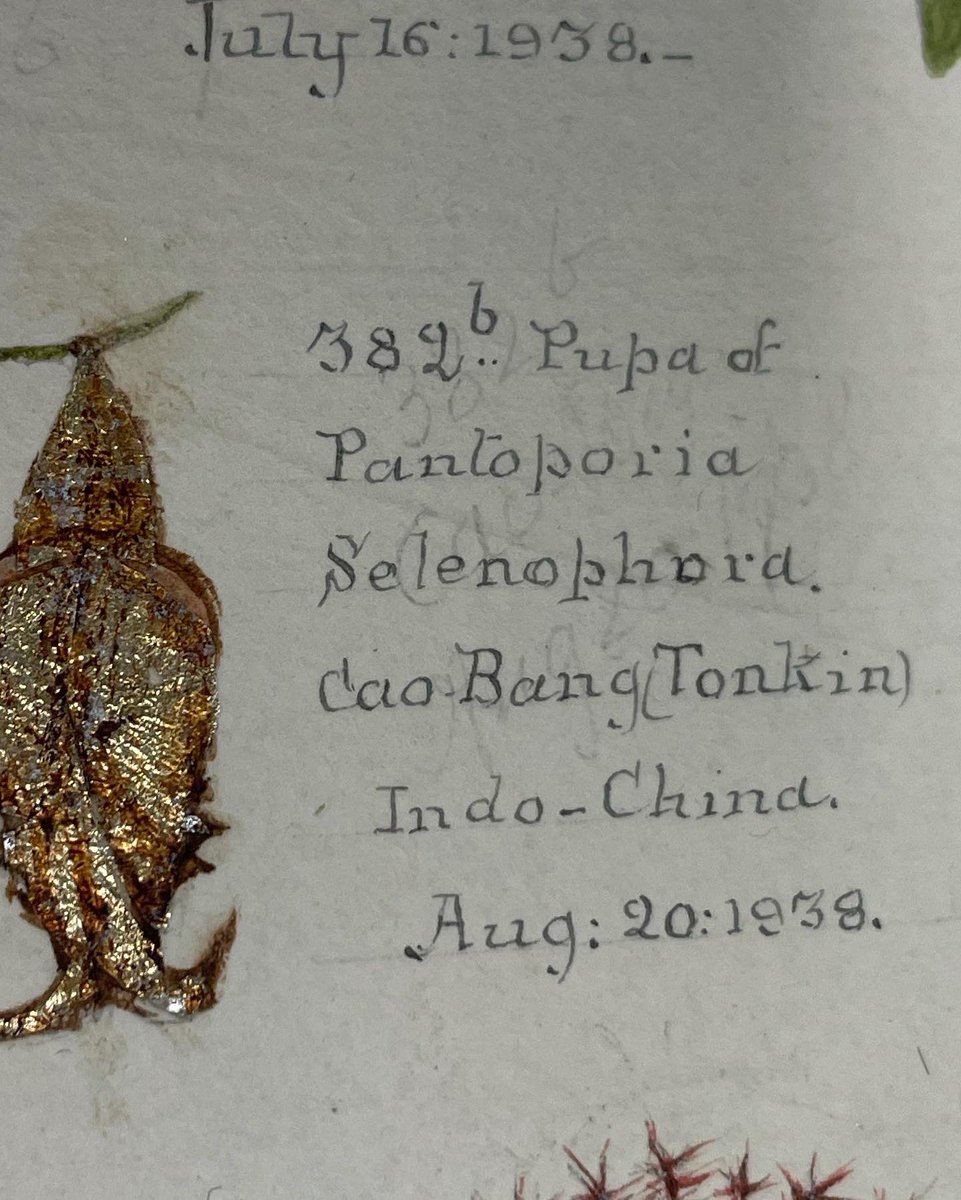 July 16:1938.–
382b.. Pupa of
Pantoporia
Selenophora.
Cao-Bang(Tonkin)
Indo-China.
Aug: 20:1938.